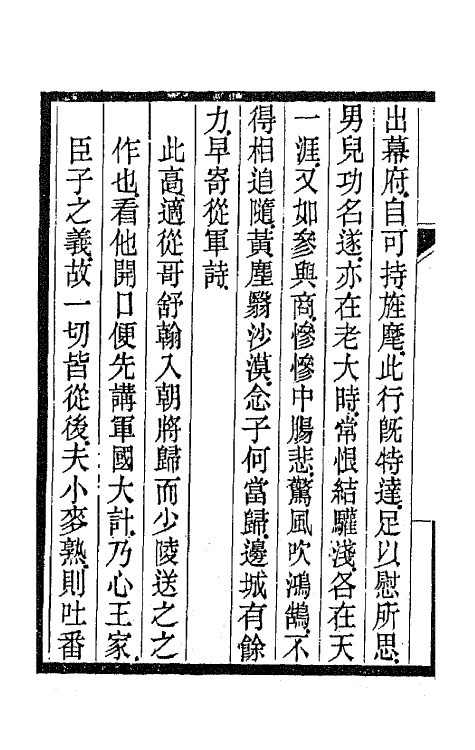 出幕府.自可持旌麾.此行既特達.足以慰所思.
男兒功名遂.亦在老大時.常恨結驩淺.各在天
一涯.又如參與商.慘慘中腸悲.驚風吹鴻鵠.不
得相追隨.黃塵翳沙漠.念子何當歸.邊城有餘
力.早寄從軍詩.
此高適從哥舒翰入朝將歸而少陵送之之
作也.看他開口便先講軍國大計.乃心王家.
臣子之義.故一切皆從後.夫小麥熟.則吐番